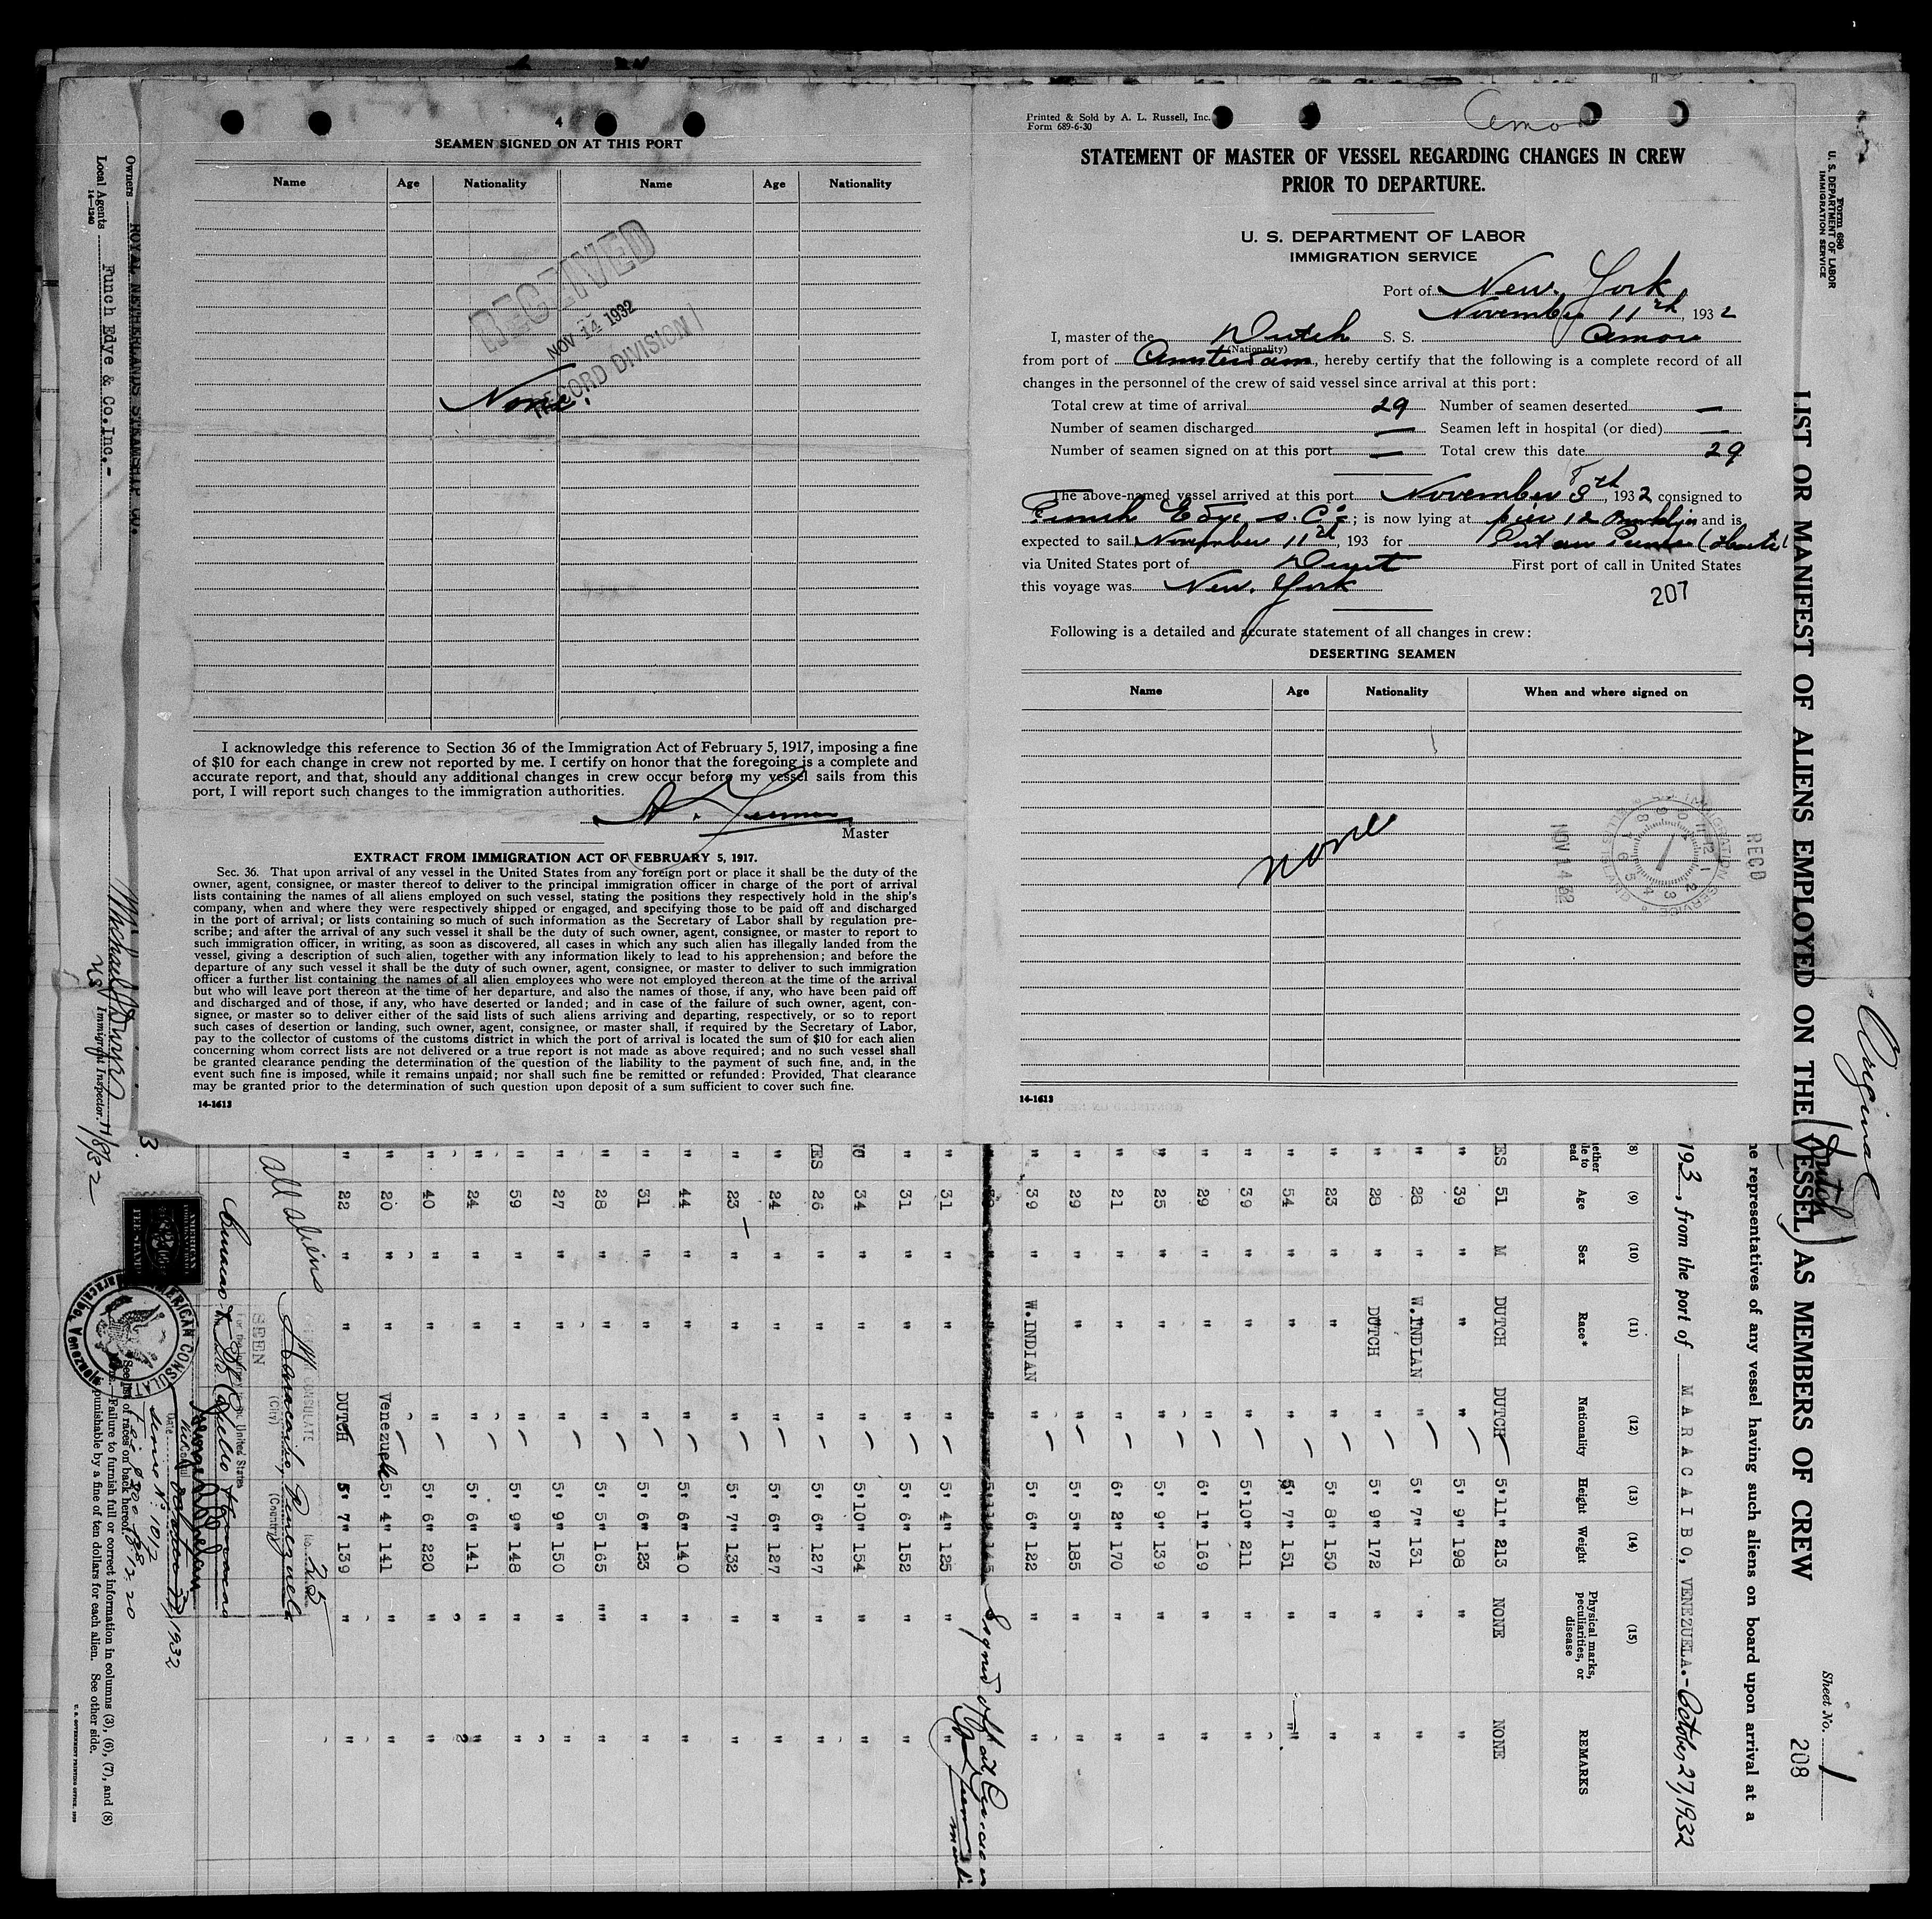 4
SEAMEN SIGNED ON AT THIS PORT
Name Age Nationality Name Age Nationality
RECEIVED
NOV 14 1932
RECORD DIVISION
None.
I acknowledge this reference to Section 36 of the Immigration Act of February 5, 1917, imposing a fine
of $10 for each change in crew not reported by me. I certify on honor that the foregoing is a complete and
accurate report, and that, should any additional changes in crew occur before my vessel sails from this
port, I will report such changes to the immigration authorities.
Master
EXTRACT FROM IMMIGRATION ACT OF FEBRUARY 5, 1917.
Sec. 36. That upon arrival of any vessel in the United States from any foreign port or place it shall be the duty of the
owner, agent, consignee, or master thereof to deliver to the principal immigration officer in charge of the port of arrival
lists containing the names of all aliens employed on such vessel, stating the positions they respectively hold in the ship's
company, when and where they were respectively shipped or engaged, and specifying those to be paid off and discharged
in the port of arrival; or lists containing so much of such information as the Secretary of Labor shall by regulation pre-
scribe; and after the arrival of any such vessel it shall be the duty of such owner, agent, consignee, or master to report to
such immigration officer, in writing, as soon as discovered, all cases in which any such alien has illegally landed from the
vessel, giving a description of such alien, together with any information likely to lead to his apprehension; and before the
departure of any such vessel it shall be the duty of such owner, agent, consignee, or master to deliver to such immigration
officer a further list containing the names of all alien employees who were not employed thereon at the time of the arrival
but who will leave port thereon at the time of her departure, and also the names of those, if any, who have been paid off
and discharged and of those, if any, who have deserted or landed; and in case of the failure of such owner, agent, con-
signee, or master so to deliver either of the said lists of such aliens arriving and departing, respectively, or so to report
such cases of desertion or landing, such owner, agent, consignee, or master shall, if required by the Secretary of Labor,
pay to the collector of customs of the customs district in which the port of arrival is located the sum of $10 for each alien
concerning whom correct lists are not delivered or a true report is not made as above required; and no such vessel shall
be granted clearance pending the determination of the question of the liability to the payment of such fine, and, in the
event such fine is imposed, while it remains unpaid; nor shall such fine be remitted or refunded: Provided, That clearance
may be granted prior to the determination of such question upon deposit of a sum sufficient to cover such fine.
14-1613
Printed & Sold by A. L. Russell, Inc.
Form 689-6-30
Amor
STATEMENT OF MASTER OF VESSEL REGARDING CHANGES IN CREW
PRIOR TO DEPARTURE.
U. S. DEPARTMENT OF LABOR
IMMIGRATION SERVICE
Port of New York
November 11th, 1932
I, master of the Dutch S. S. Amor
(Nationality)
from port of Amsterdam, hereby certify that the following is a complete record of all
changes in the personnel of the crew of said vessel since arrival at this port:
Total crew at time of arrival 29 Number of seamen deserted —
Number of seamen discharged — Seamen left in hospital (or died) —
Number of seamen signed on at this port — Total crew this date 29
The above-named vessel arrived at this port November 8th, 1932 consigned to
Funch Edye & Co; is now lying at pier 12 Brooklyn and is
expected to sail November 11th, 193 for Port au Prince
via United States port of Direct First port of call in United States
this voyage was New York
207
Following is a detailed and accurate statement of all changes in crew:
DESERTING SEAMEN
Name Age Nationality When and where signed on
none
RECD
NOV 14 32
14-1613
Form 680
U. S. DEPARTMENT OF LABOR
IMMIGRATION SERVICE
LIST OR MANIFEST OF ALIENS EMPLOYED ON THE (Dutch VESSEL) AS MEMBERS OF CREW
Original
Sheet No. 1
208
he representatives of any vessel having such aliens on board upon arrival at a
193 , from the port of MARACAIBO, VENEZUELA.- October, 27, 1932
(8) (9) (10) (11) (12) (13) (14) (15)
Age Sex Race* Nationality Height Weight Physical marks, peculiarities, or disease REMARKS
ES 51 M DUTCH DUTCH 5'11" 213 NONE NONE
" 39 " " " 5' 9" 198 " "
" 28 " W.INDIAN " 5' 7" 131 " "
" 28 " DUTCH " 5' 9" 172 " "
" 23 " " " 5' 8" 150 " "
" 54 " " " 5' 7" 151 " "
" 39 " " " 5'10" 211 " "
" 29 " " " 6' 1" 169 " "
" 25 " " " 5' 9" 139 " "
" 21 " " " 6' 2" 170 " "
" 29 " " " 5' 5" 185 " "
" 39 " W.INDIAN " 5' 6" 122 " "
5'11" 145 Signed off at Curacao
" 31 " " " 5' 4" 125 " "
" 31 " " " 5' 6" 152 " "
NO 34 " " " 5'10" 154 " "
YES 26 " " " 5' 6" 127 " "
" 24 " " " 5' 6" 127 " "
" 23 " " " 5' 7" 132 " "
" 44 " " " 5' 6" 140 " "
" 31 " " " 5' 6" 123 " "
" 28 " " " 5' 5" 165 " "
" 27 " " " 5' 9" 150 " "
" 59 " " " 5' 9" 148 " "
" 24 " " " 5' 6" 141 " "
" 40 " " " 5' 6" 220 " "
" 20 " " Venezuela 5' 4" 141 " "
" 22 " " DUTCH 5' 7" 139 " "
All Aliens
CONSULATE
Maracaibo, Venezuela
(City) (Country)
No. 25
SEEN
AMERICAN CONSULATE
Maracaibo, Venezuela
See list of races on back hereof.
Failure to furnish full or correct information in columns (3), (6), (7), and (8)
punishable by a fine of ten dollars for each alien. See other side.
U. S. GOVERNMENT PRINTING OFFICE
Owners ROYAL NETHERLANDS STEAMSHIP CO.
Local Agents Funch Edye & Co.Inc.-
14-1240
Immigrant Inspector. 11/8/32